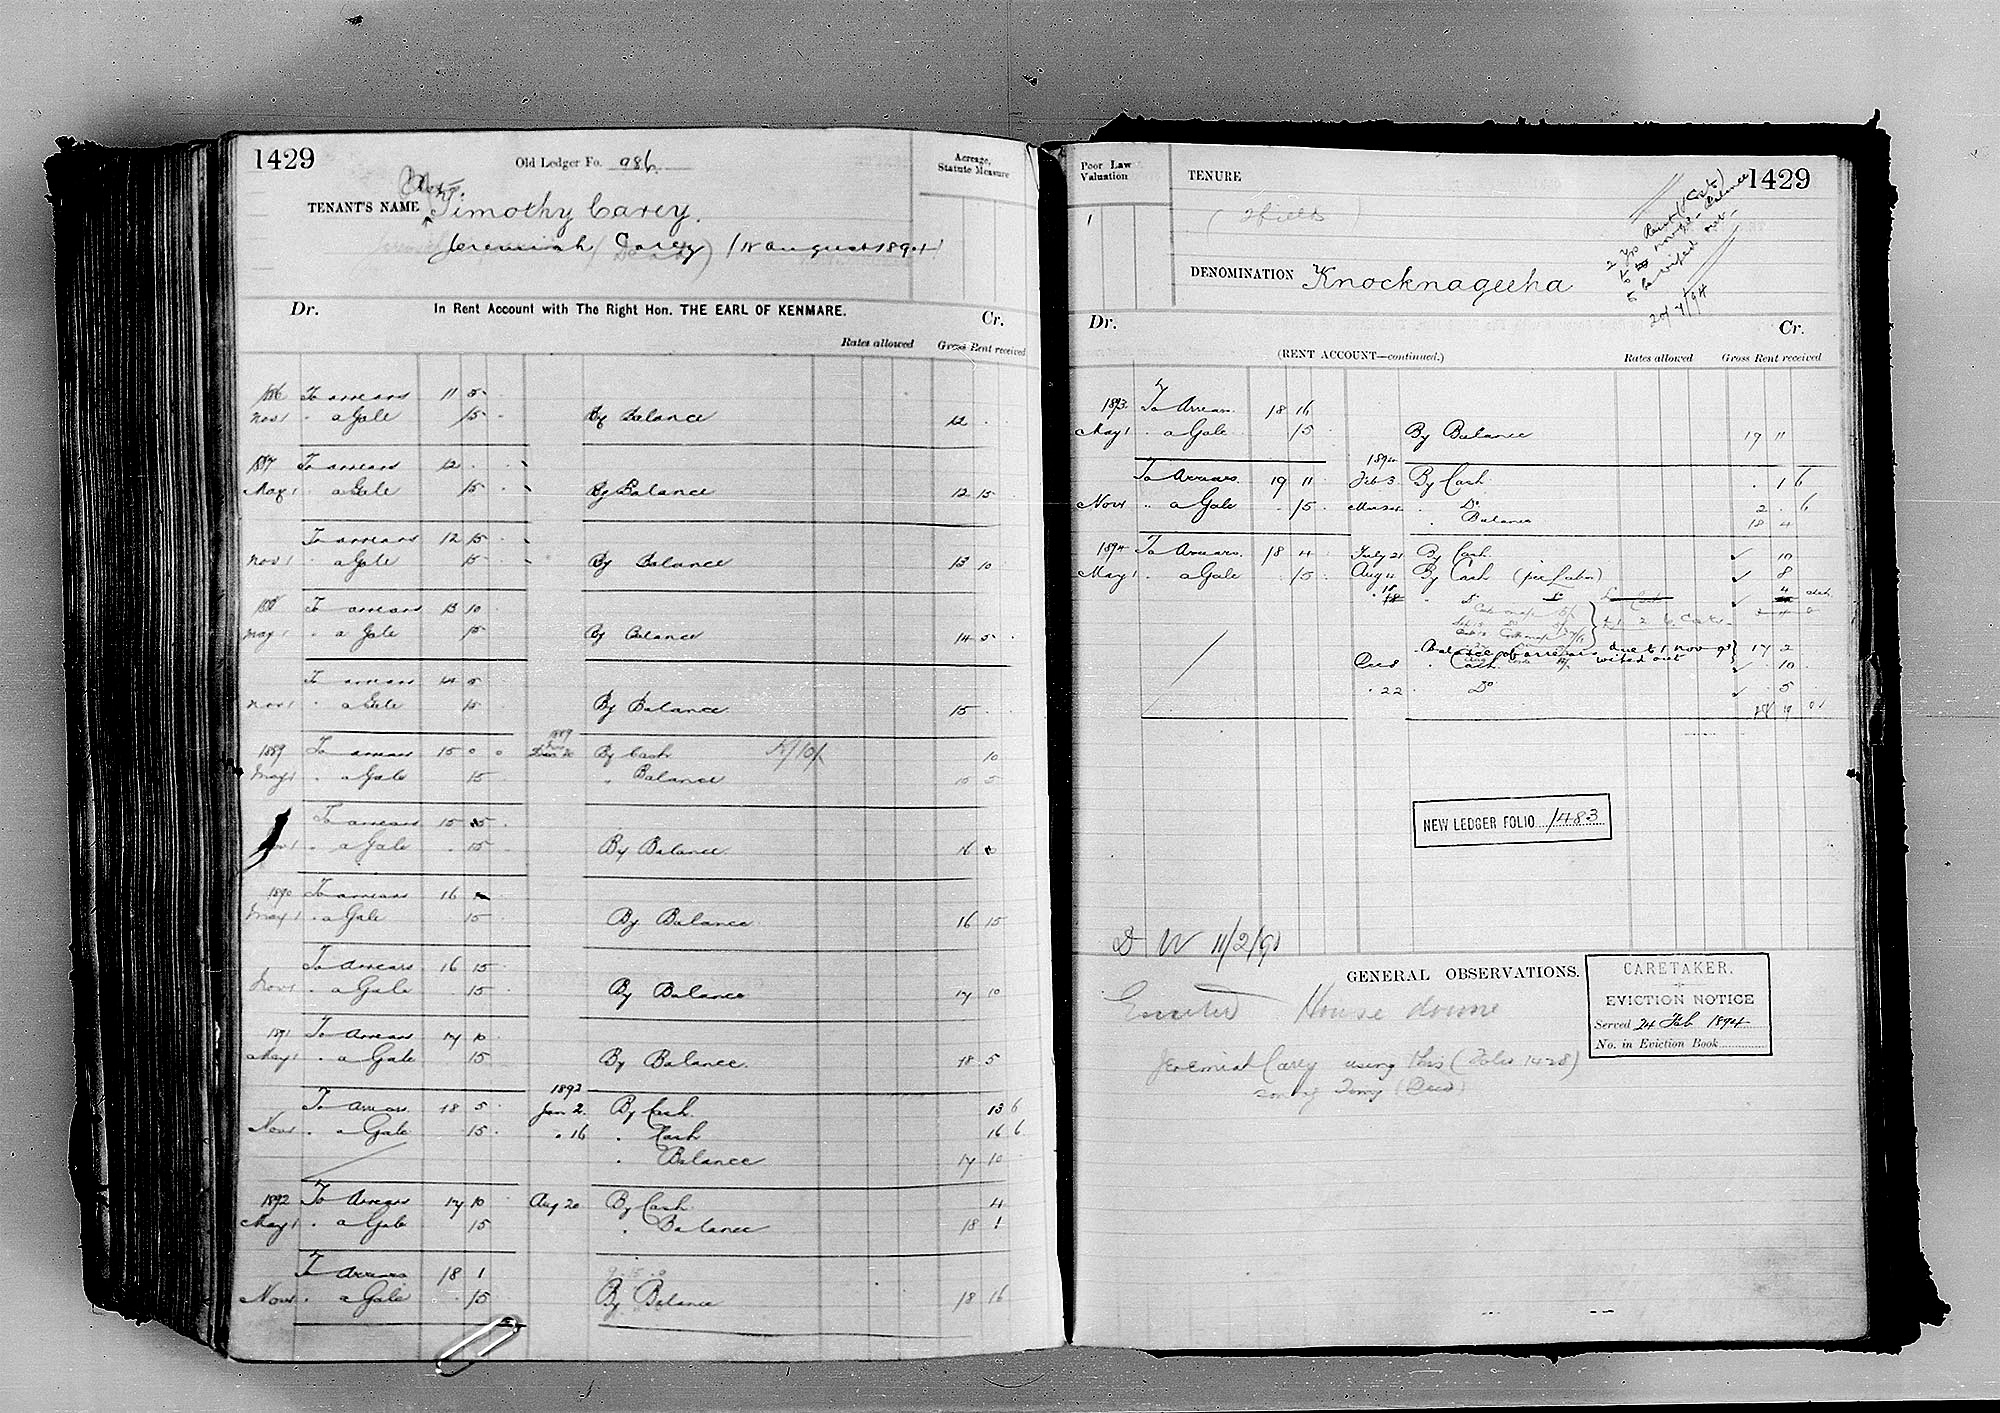 1429
Old Ledger Fo. 986
Acreage, Statute Measure
TENANT'S NAME Timothy Carey.
Jeremiah Carey (18 August 1894)
Dr. In Rent Account with The Right Hon. THE EARL OF KENMARE. Cr.
Rates allowed Gross Rent received
1886 To arrears 11 5
Nov 1 " a Gale 15 By Balance 12
1887 To arrears 12
May 1 " a Gale 15 By Balance 12 15
To arrears 12 15
Nov 1 " a Gale 15 By Balance 13 10
1888 To arrears 13 10
May 1 " a Gale 15 By Balance 14 5
To arrears 14 5
Nov 1 " a Gale 15 By Balance 15
1889
1889 To arrears 15 0 0 20 By Cash 10
May 1 " a Gale 15 " Balance 15 5
To arrears 15 5
Nov 1 " a Gale 15 By Balance 16 0
1890 To arrears 16
May 1 " a Gale 15 By Balance 16 15
To Arrears 16 15
Nov 1 " a Gale 15 By Balance 17 10
1891 To Arrears 17 10
May 1 " a Gale 15 By Balance 18 5
1892
To Arrears 18 5 Jan 2. By Cash 13 6
Nov 1 " a Gale 15 " 16 " Cash 16 6
" Balance 17 10
1892 To Arrears 17 10 Aug 20 By Cash 4
May 1 " a Gale 15 " Balance 18 1
To Arrears 18 1
Nov 1 " a Gale 15 By Balance 18 16
Poor Law Valuation
TENURE
1429
1
DENOMINATION Knocknageeha
2 Yrs Rent
Balance
to be wiped out
Dr. Cr.
(RENT ACCOUNT—continued.) Rates allowed Gross Rent received
1893 To Arrears 18 16
May 1 " a Gale 15 By Balance 19 11
1894
To Arrears 19 11 Feb 3 By Cash 1 6
Nov 1 " a Gale 15 Do 2 6
" Balance 18 4
1894 To Arrears 18 4 July 21 By Cash 10
May 1 " a Gale 15 Aug 11 By Cash (per Labr) 8
18 Do Do 4
Balance of arrears due to 1 Nov 93 wiped out 17 2
Cash 10
" 22 Do 5
NEW LEDGER FOLIO 1483
D W 11/2/91
GENERAL OBSERVATIONS.
CARETAKER.
EVICTION NOTICE
Served 24 Feb 1894
No. in Eviction Book
Evicted House down
Jeremiah Carey using this (Folio 1428)
son of Tomy (Decd)